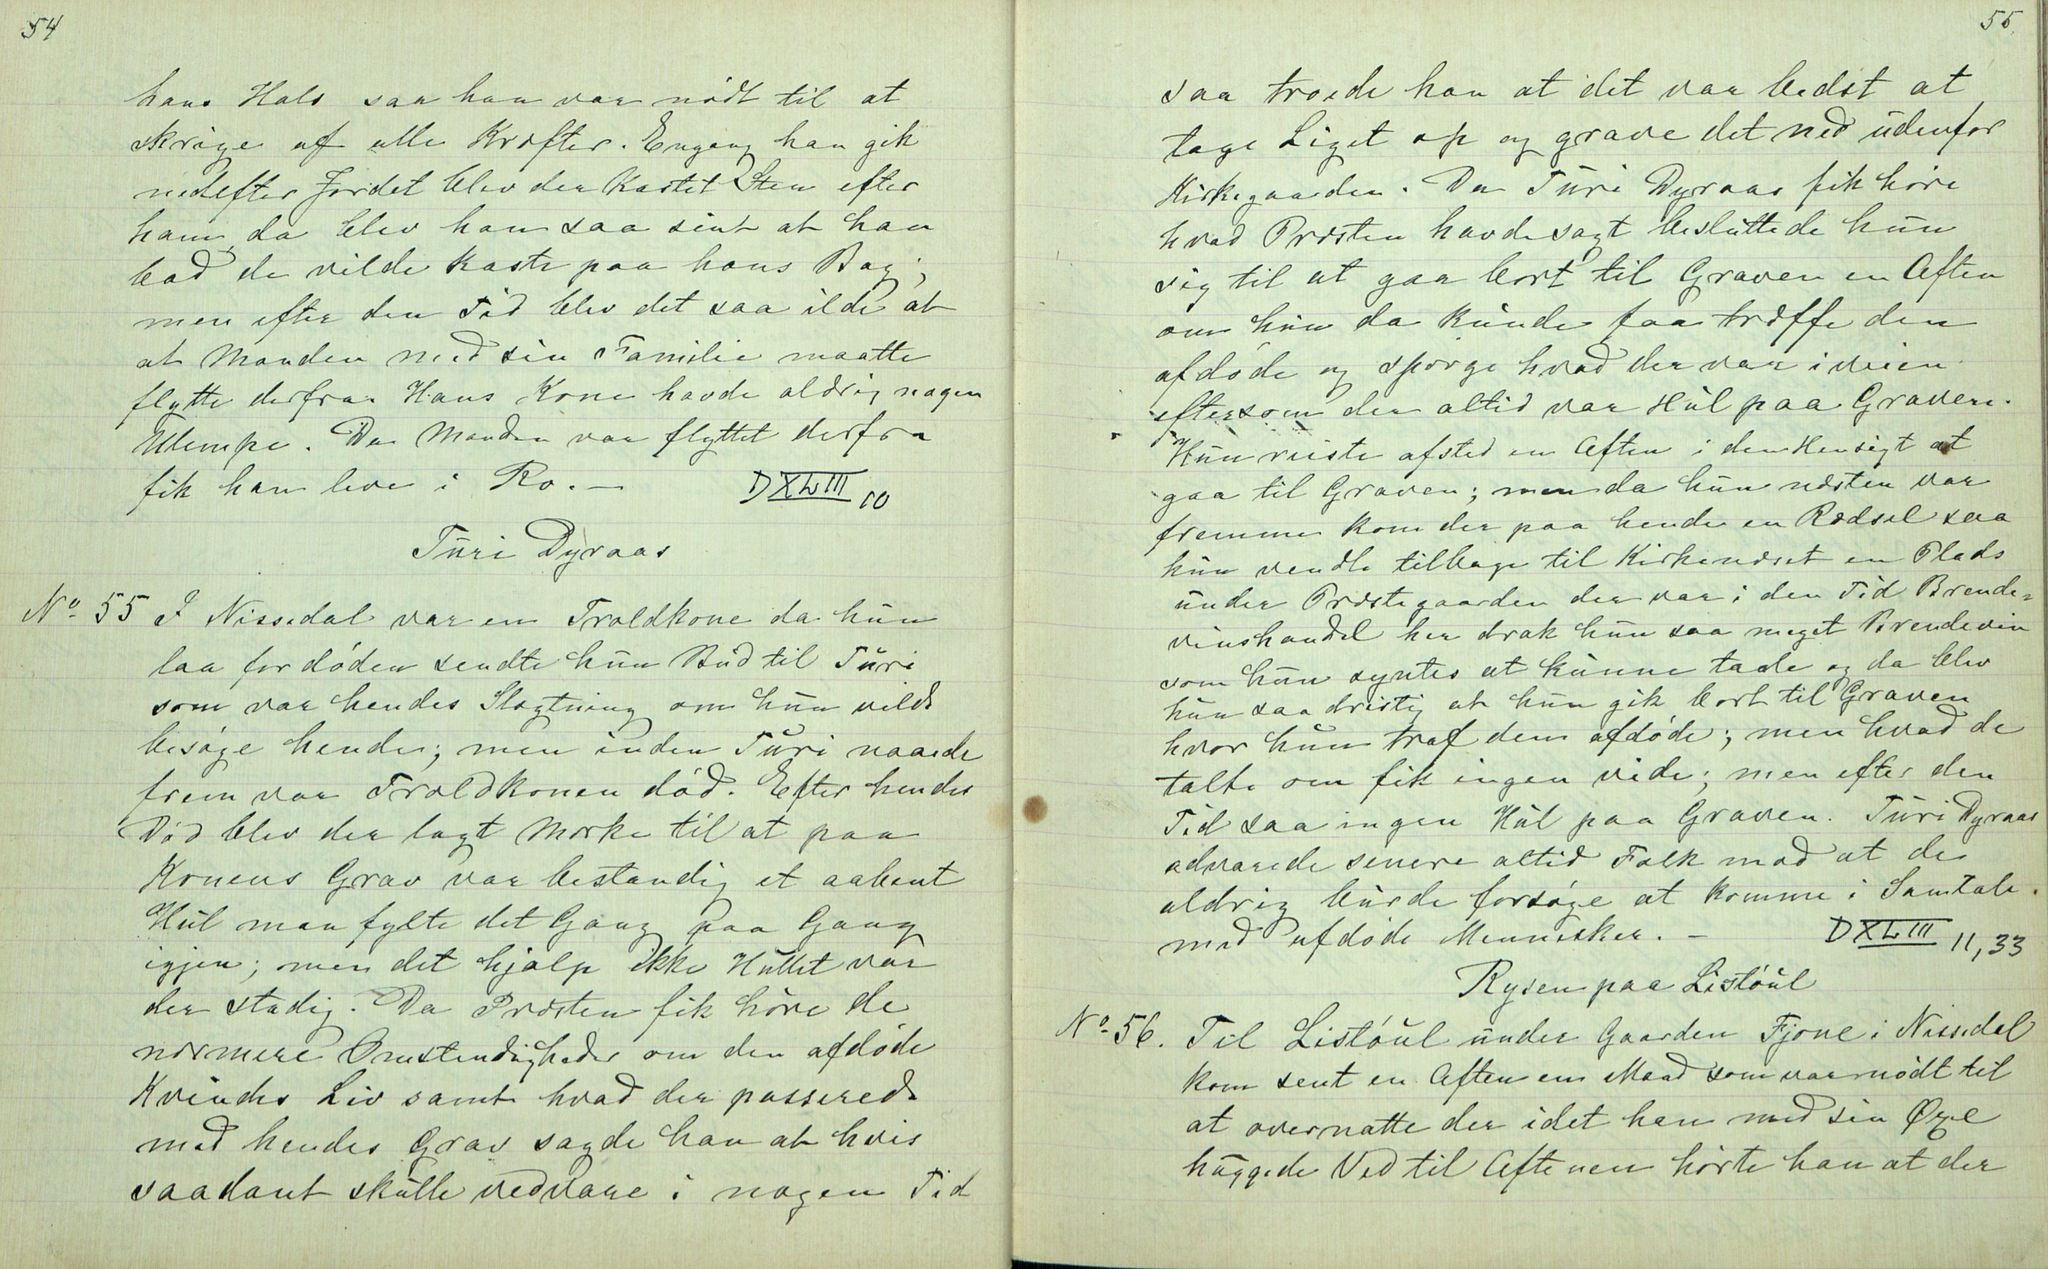 54
hans Hals saa han var nødt til at
skrige af alle Kræfter. Engang han gik
nedefter Jordet blev der kastet Sten efter
ham, da blev han saa sint at han
bad de vilde kaste paa hans Bag;
men efter den Tid blev det saa ilde at
at Manden med sin Familie maatte
flytte derfra. Hans Kone havde aldrig nogen
Ulempe. Da Manden var flyttet derfra
fik han leve i Ro. —
D XLIII 10
Turi Dyraas
No 55 I Nissedal var en Troldkone da hun
laa for døden sendte hun Bud til Turi
som var hendes Slægtning om hun vilde
besøge hende; men inden Turi naaede
frem var Troldkonen død. Efter hendes
Død blev der lagt Mærke til at paa
Konens Grav var bestandig et aabent
Hul man fylte det Gang paa Gang
igjen; men det hjalp ikke Hullet var
der stadig. Da Præsten fik høre de
nærmere Omstendigheder om den afdøde
Kvindes Liv samt hvad der passerede
med hendes Grav sagde han at hvis
saadant skulle vedvare i nogen Tid
55.
saa troede han at det var bedst at
tage Liget op og grave det ned udenfor
Kirkegaarden. Da Turi Dyraas fik høre
hvad Præsten havde sagt besluttede hun
sig til at gaa bort til Graven en Aften
om hun da kunde faa træffe den
afdøde og spørge hvad der var i veien
eftersom der altid var Hul paa Graven.
Hun reiste afsted en Aften i den Hensigt at
gaa til Graven; men da hun næsten var
fremme kom der paa hende en Rædsel saa
hun vendte tilbage til Kirkeneset en Plads
under Præstegaarden der var i den Tid Brende-
vinshandel her drak hun saa meget Brendevin
som hun syntes at kunne taale og da blev
hun saa dristig at hun gik bort til Graven
hvor hun traf den afdøde; men hvad de
talte om fik ingen vide; men efter den
Tid saa ingen Hul paa Graven. Turi Dyraas
advarede senere altid Folk mod at de
aldrig burde forsøge at komme i Samtale
med afdøde Mennesker. —
D XLIII 11,33
Rysen paa Listøul
No 56. Til Listøul under Gaarden Fjone i Nissedal
kom sent en Aften en Mand som var nødt til
at overnatte der idet han med sin Øxe
huggede Ved til Aftenen hørte han at der